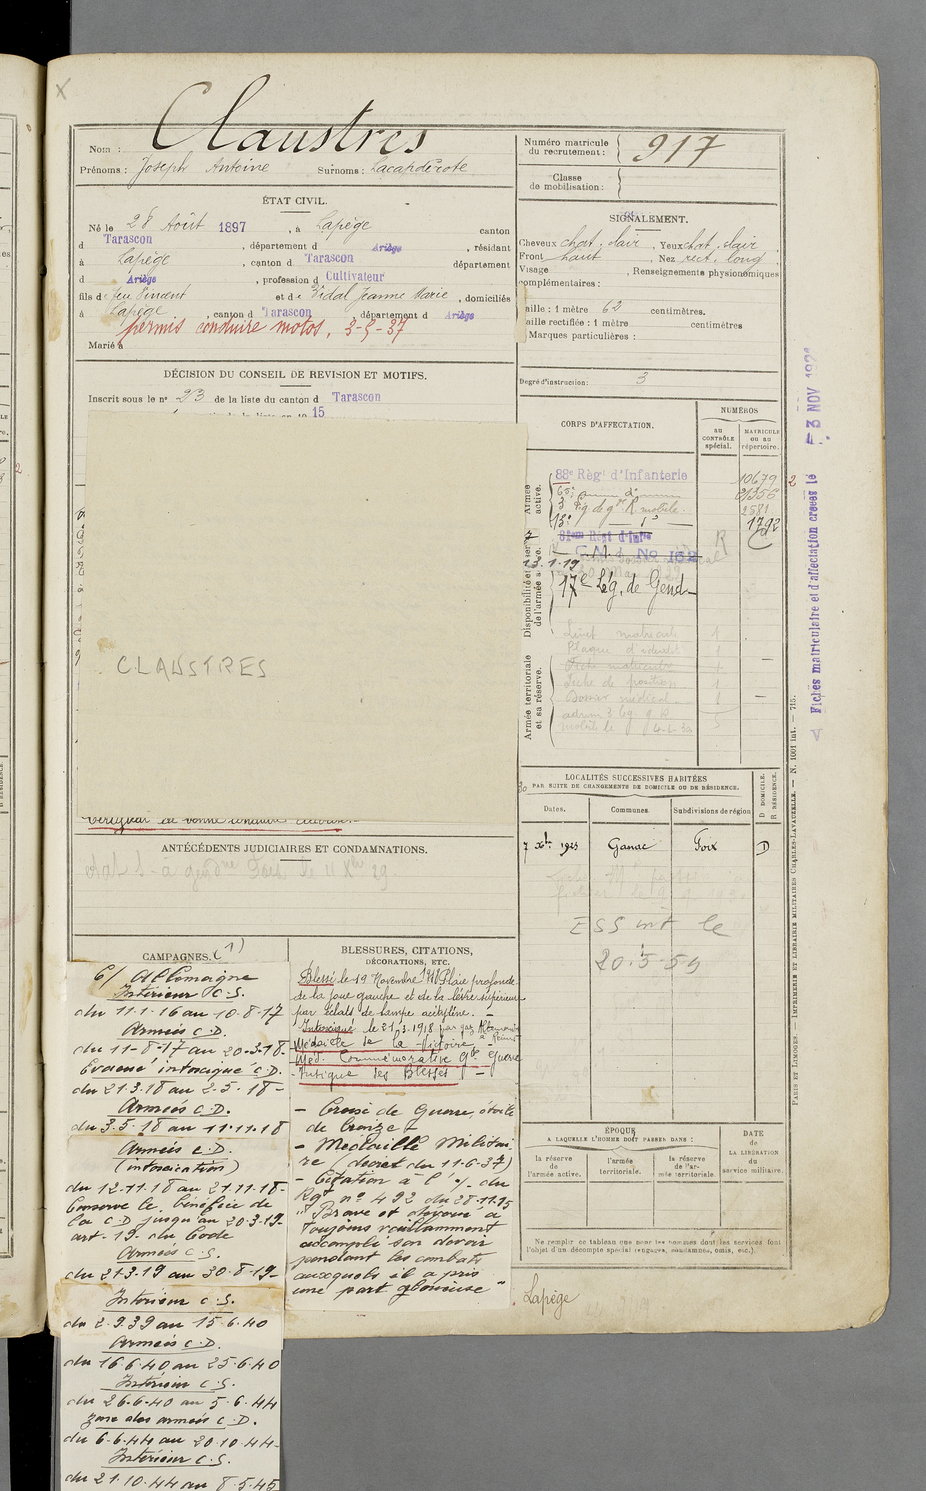 Claustres
Nom :
Prénoms : Joseph Antoine Surnoms : Lacapderote
Numéro matricule
du recrutement : 917
Classe
de mobilisation :
ÉTAT CIVIL.
Né le 28 Août 1897, à Lapège canton
d Tarascon, département d Ariège, résidant
à Lapège, canton d Tarascon département
d Ariège, profession d Cultivateur
fils de feu Vincent et de Vidal Jeanne Marie, domiciliés
à Lapège, canton d Tarascon département d Ariège
permis conduire motos, 3-9-37
Marié à
SIGNALEMENT.
Cheveux chat. clair, Yeux chat. clair,
Front haut, Nez rect. long,
Visage, Renseignements physionomiques
complémentaires :
Taille : 1 mètre 62 centimètres.
Taille rectifiée : 1 mètre centimètres
Marques particulières :
Degré d'instruction : 3
DÉCISION DU CONSEIL DE REVISION ET MOTIFS.
Inscrit sous le nº 23 de la liste du canton d Tarascon
15
CLAUSTRES
CORPS D'AFFECTATION.
NUMÉROS
au
CONTRÔLE
spécial.
MATRICULE
ou au
répertoire.
Armée
active.
88e Règt d'Infanterie 10679
81em Régt d'Infie
C.M. d. No 162
13.1.19
17e Lég. de Gend
Disponibilité et réserve
de l'armée active.
Livret matricule 1
Plaque d'identité 1
Fiche matricule 1
Fiche de position 1
Dossier médical 1
Armée territoriale
et sa réserve.
LOCALITÉS SUCCESSIVES HABITÉES
PAR SUITE DE CHANGEMENTS DE DOMICILE OU DE RÉSIDENCE.
Dates. Communes. Subdivisions de région
D DOMICILE.
R RÉSIDENCE.
7 Xbre 1923 Ganac Foix D
20.5.59
ANTÉCÉDENTS JUDICIAIRES ET CONDAMNATIONS.
CAMPAGNES. (1)
C/ Allemagne
Intérieur C.S.
du 11.1.16 au 10.8.17
Armées C.D.
du 11-8-17 au 20.3.18-
Evacué intoxiqué C.D.
du 21.3.18 au 2.5.18-
Armées C.D.
du 3.5.18 au 11.11.18
Armées C.D.
(intoxication)
du 12.11.18 au 21.11.18-
Conserve le bénéfice de
la C.D jusqu'au 20.3.19-
art-19. du Code
Armées C.S.
du 21.3.19 au 30.8.19-
Intérieur C.S.
du 2.9.39 au 15.6.40
Armées C.D.
du 16.6.40 au 25.6.40
Intérieur C.S.
du 26.6.40 au 5.6.44
Zone des armées C.D.
du 6.6.44 au 20.10.44-
Intérieur C.S.
du 21.10.44 au 8.5.45
BLESSURES, CITATIONS,
DÉCORATIONS, ETC.
Blessé le 19 Novembre Plaie profonde
de la joue gauche et de la lèvre supérieure
par éclats de lampe acétylène. -
Intoxiqué le 21.3.1918 par gaz
Médaille de la Victoire -
Méd. Commémorative Gde Guerre
- Insigne des Blessés -
- Croix de Guerre, étoile
de bronze -
- Médaille Militai-
re (décret du 11-6-37)
- Citation à l'o/. du
Rgt nº 492 du 28-11-15
"Brave et dévoué a
toujours vaillamment
accompli son devoir
pendant les combats
auxquels il a pris
une part glorieuse"
ÉPOQUE
A LAQUELLE L'HOMME DOIT PASSER DANS :
la réserve
de l'armée active.
l'armée
territoriale.
la réserve
de l'ar-
mée territoriale.
DATE
de
LA LIBÉRATION
du
service militaire.
Ne remplir ce tableau que pour les hommes dont les services font
l'objet d'un décompte spécial (engagés, condamnés, omis, etc.).
Lapège
Fiches matriculaire et d'affectation créées le 3 NOV 192
PARIS ET LIMOGES. — IMPRIMERIE ET LIBRAIRIE MILITAIRES CHARLES-LAVAUZELLE. — N. 1001 int. — 715.